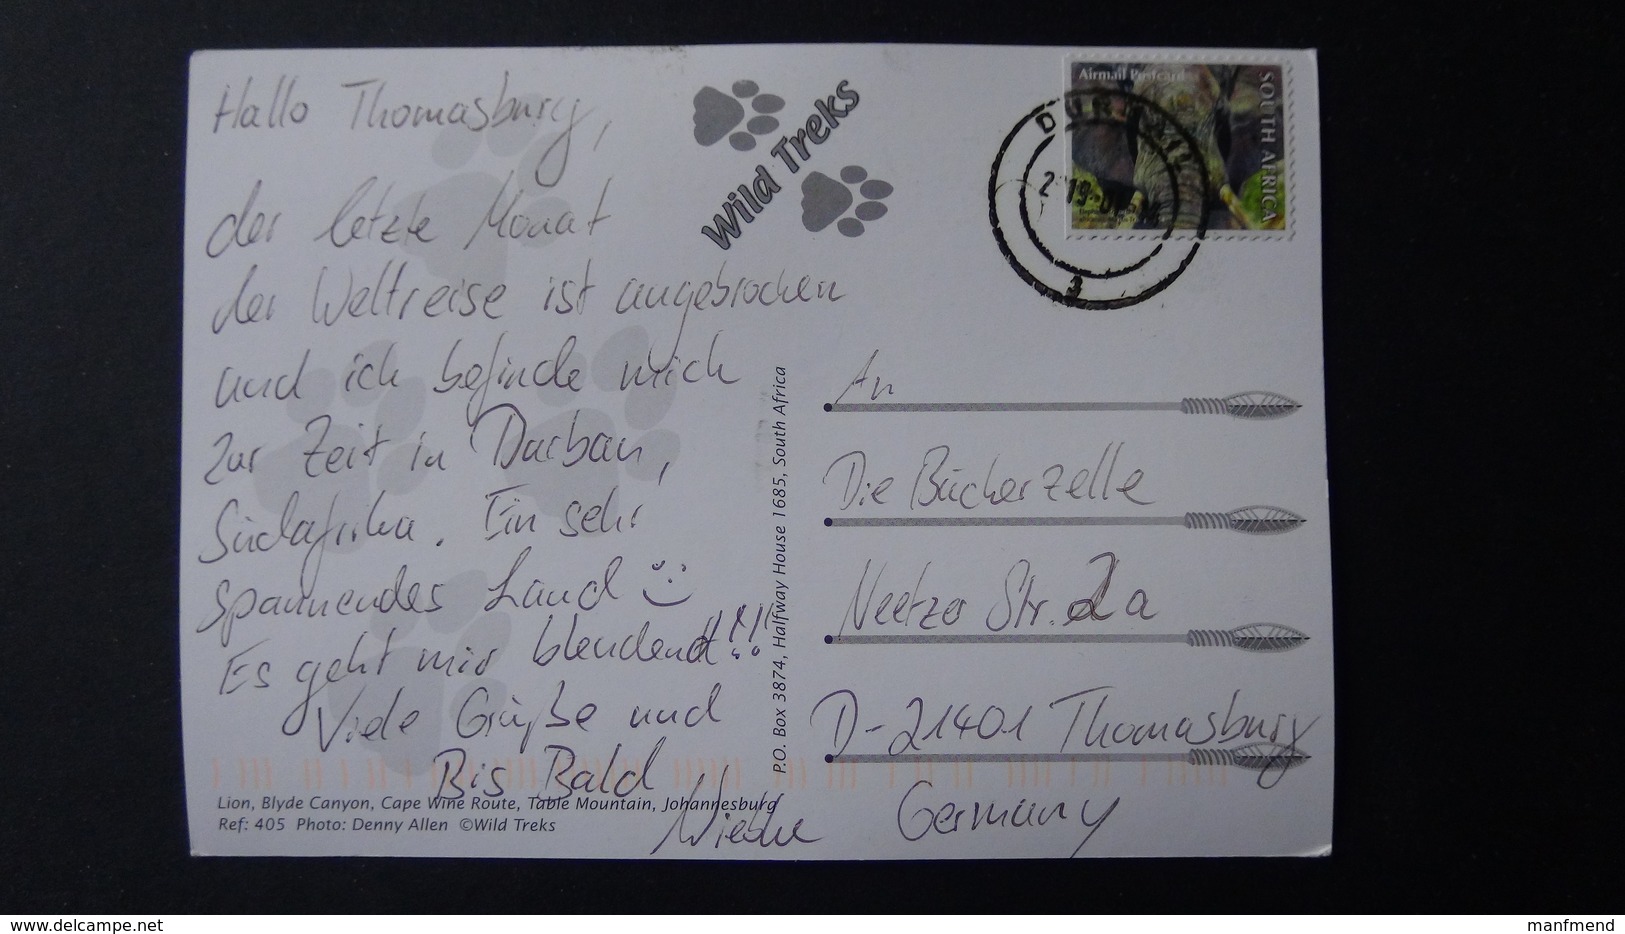 Hallo Thomasburg,
der letzte Monat
der Weltreise ist angebrochen
und ich befinde mich
zur Zeit in Durban,
Südafrika. Ein sehr
spannendes Land
Es geht mir blendend!!!
Viele Grüße und
Bis Bald
Wild Treks
P.O. Box 3874, Halfway House 1685, South Africa
Airmail Postcard
SOUTH AFRICA
3
An
Die Bücherzelle
Neetzer Str. 2a
D-21401 Thomasburg
Germany
Lion, Blyde Canyon, Cape Wine Route, Table Mountain, Johannesburg
Ref: 405 Photo: Denny Allen ©Wild Treks
www.delcampe.net
manfmend